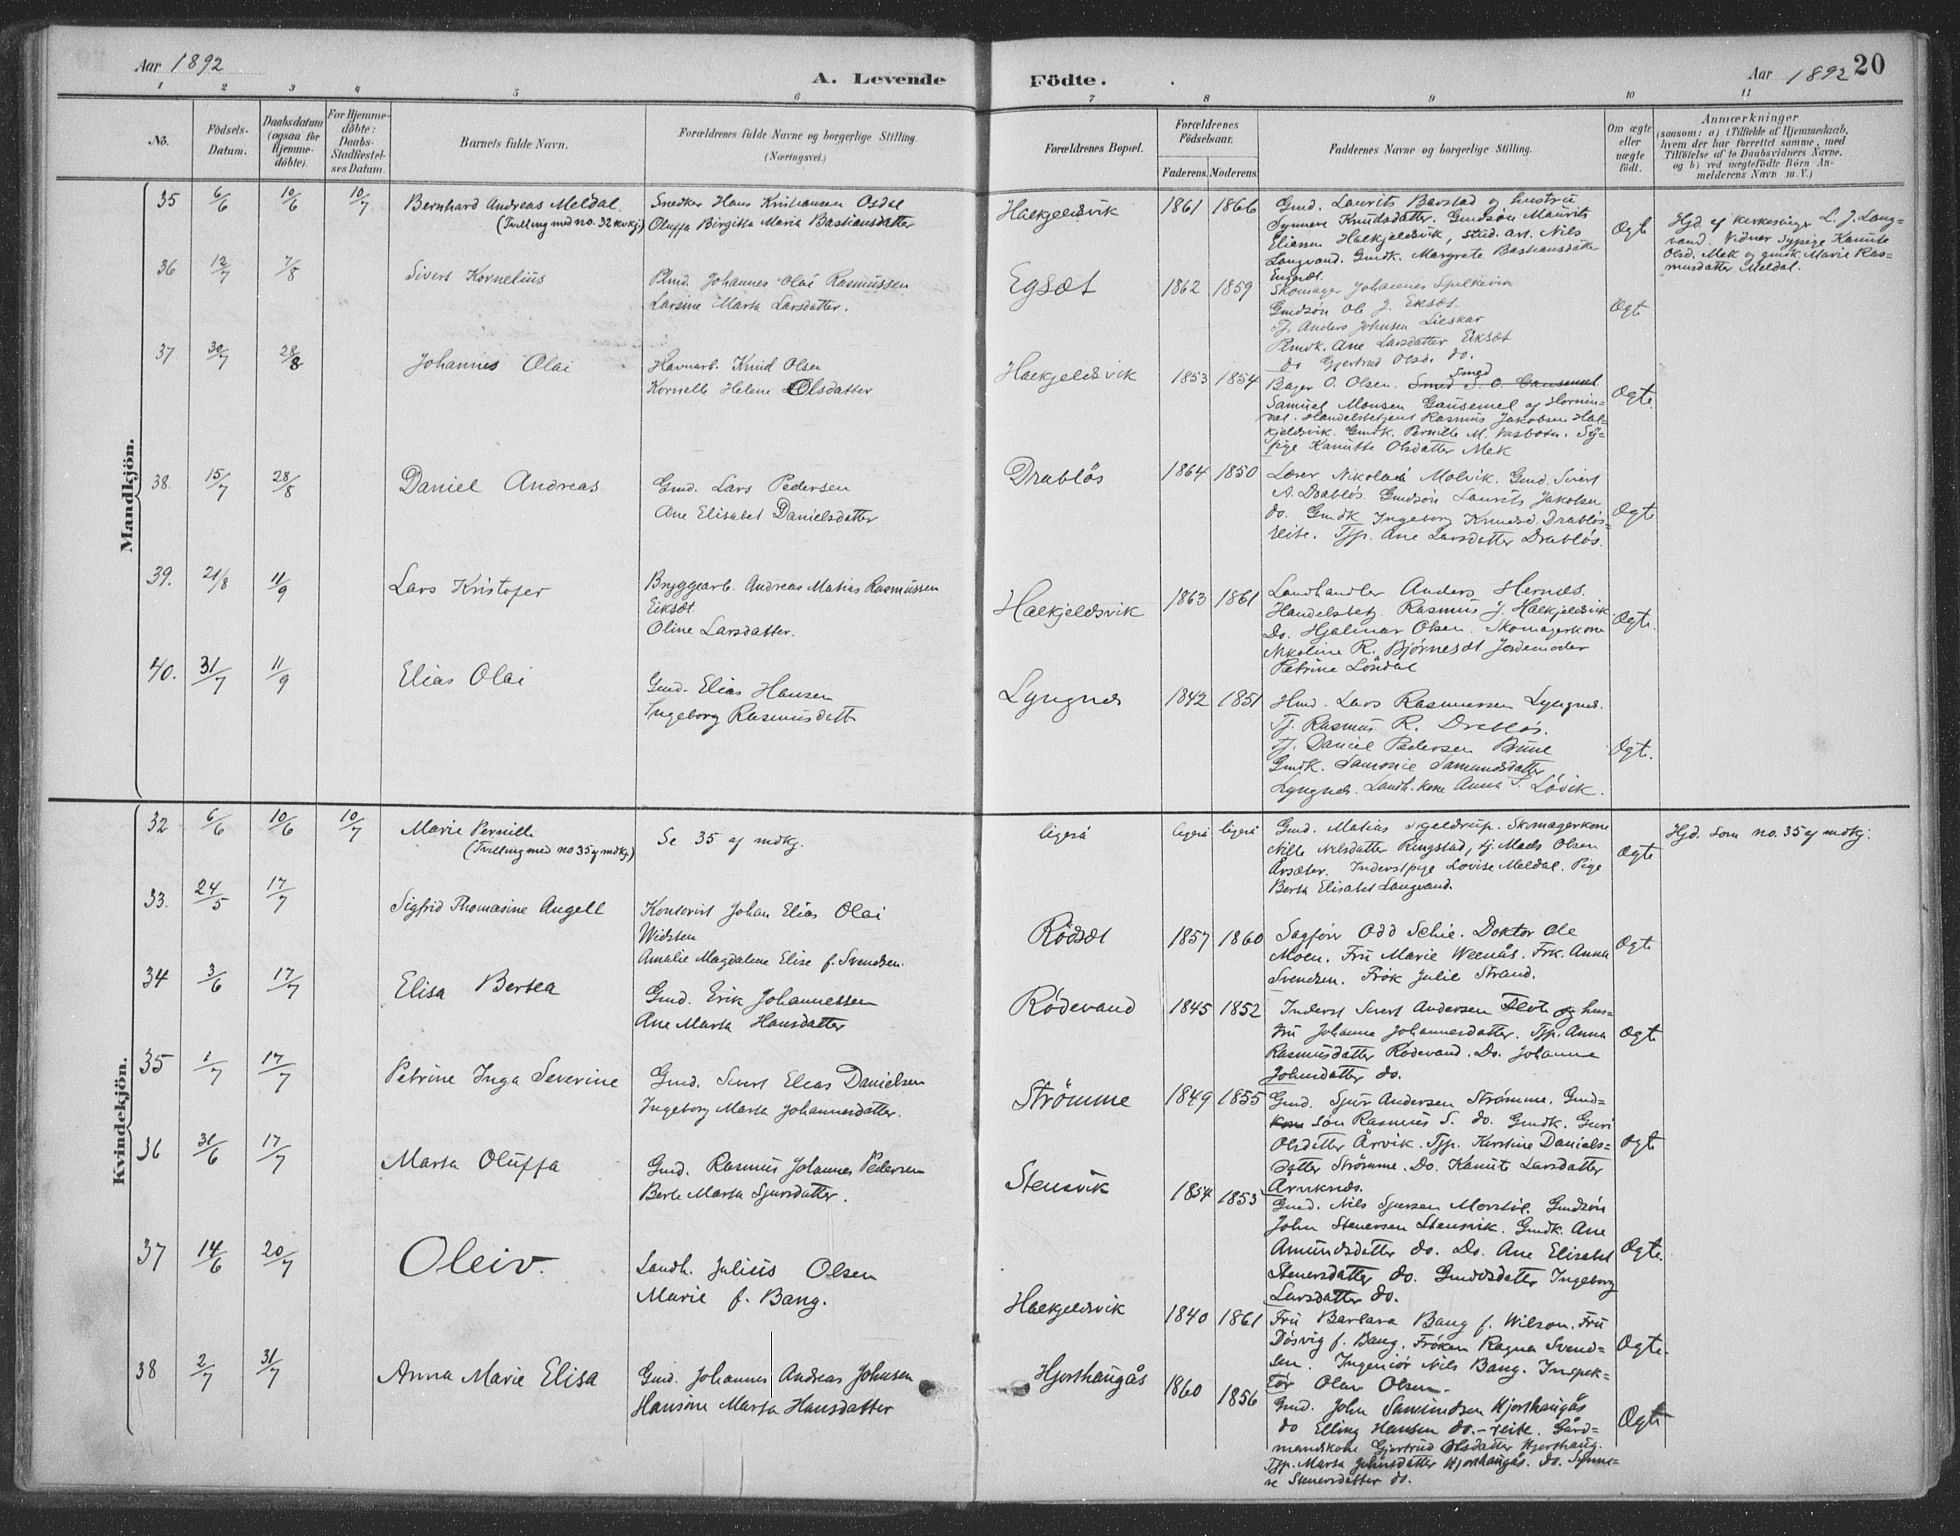 Aar 1892
A. Levende
Födte.
Aar 1892
20
1 2 3 4 5 6 7 8 9 10 11
No.
Födsels-
Datum.
Daabsdatum
(ogsaa for
Hjemme-
döbte).
For Hjemme-
döbte:
Daabs-
Stadfæstel-
ses Datum.
Barnets fulde Navn.
Forældrenes fulde Navne og borgerlige Stilling.
(Næringsvei.)
Forældrenes Bopæl.
Forældrenes
Födselsaar.
Faderens. Moderens.
Faddernes Navne og borgerlige Stilling.
Om ægte
eller
uægte
födt.
Anmærkninger
(saasom: a) i Tilfælde af Hjemmedaab,
hvem der har forrettet samme, med
Tilföielse af to Daabsvidners Navne.
og b) ved uægtefödte Börn An-
melderens Navn m. V.)
Mandkjön.
35 6/6 10/6 10/7 Bernhard Andreas Meldal
(Tvilling med no. 32 kvkj.)
Snedker Hans Kristiansen Osdal
Oluffa Birgitta Maria Bastiansdatter
Halkjeldsvik 1861 1866
Gmd. Laurits Barstad og hustru
Synnere Knudsdatter. Gmdsön Maurits
Eliassen Halkjeldsvik, stud. art. Nils
Langvand. Gmdk. Margrete Bastiansdatter
Engsæt.
Ægte
Hjd. af kirkesanger L. J. Lang-
vand. Vidner Sypige Kanutte
Olsd. Mek og gmdk. Marie Ras-
musdatter Meldal.
36 12/7 7/8 Sivert Kornelius
Plmd. Johannes Olai Rasmussen
Larsine Marta Larsdatter.
Egsæt 1862 1859
Skomager Johannes Spilkevik
Gmdsön Ole J. Eksæt.
Tj. Anders Johnsen Lieskar
Plmdk. Ane Larsdatter Eiksæt
do Gjertrud Olsd. do.
Ægte
37. 30/7 28/8 Johannes Olai
Havnarb. Knud Olsen
Kornelie Helene Olsdatter
Halkjeldsvik 1853 1854
Bager O. Olsen. Smed S. O. Gausemel Smed
Samuel Monsen Gausemel af Hornin-
dal. Handelsbetjent Rasmus Jakobsen Hal-
kjeldsvik. Gmdk. Pernille M. Vasbotn. Sy-
pige Kanutte Olsdatter Mek
Ægte.
38. 15/7 28/8 Daniel Andreas
Gmd. Lars Pedersen
Ane Elisabet Danielsdatter
Drabløs 1864 1850
Lærer Nikolai Molvik. Gmd. Sivert
A. Drabløs. Gmdsön Laurits Jakobsen
do. Gmdk Ingeborg Knudsd. Drabløs-
reite. Tjp. Ane Larsdatter Drabløs.
Ægt
39. 21/8 11/9 Lars Kristofer
Bryggearb. Andreas Matias Rasmussen
Eiksæt
Oline Larsdatter.
Halkjeldsvik 1863 1861
Landhandler Anders Hernes.
Handelsbetj. Rasmus J. Halkjeldsvik
Do. Hjalmar Olsen. Skomagerkone
Nikoline R. Bjørnesdt Jordemoder
Petrine Løvdal
Ægte.
40. 31/7 11/9 Elias Olai
Gmd. Elias Hansen
Ingeborg Rasmusdatt
Lyngnes 1842 1851
Hmd. Lars Rasmussen Lyngnes.
Tj. Rasmus R. Drabløs.
Tj. Daniel Pedersen Bune
Gmdk. Samonie Samundsdatter
Lyngnes. Landh. kone Anna S. Løvik.
Ægt.
Kvindekjön.
32 6/6 10/6 10/7 Marie Pernille
(Tvilling med no 35 af mdkj.)
Se 35 af mdkj.
ligeså ligeså ligeså
Gmd. Matias Skjeldrup. Skomagerkone
Nille Nilsdatter Ringstad, tj. Mads Olsen
Årsæter. Inderstpige Lovise Meldal. Pige
Berta Elisabet Langvand.
Ægte
Hjd. som no. 35 af mdkj.
33. 24/5 17/7 Sigfrid Thomasine Angell
Kontorist Johan Elias Olai
Widsten
Amalie Magdalene Elise f. Svendsen.
Rödsæt 1857 1860
Sagförer Odd Schie. Doktor Ole
Moen. Fru Marie Weenås. Frk. Anna
Svendsen. Frøk Julie Strand.
Ægt
34 3/6 17/7 Elisa Bertea
Gmd. Erik Johannessen
Ane Marta Hansdatter
Rödevand 1845 1852
Inderst Sivert Andersen Flote og hus-
tru Johanne Johannesdatter. Tjp. Anna
Rasmusdatter Rødevand. Do. Johanne
Johnsdatter do.
Ægt
35 1/7 17/7 Petrine Inga Severine
Gmd. Sivert Elias Danielsen
Ingeborg Marta Johannesdatter.
Strömme 1849 1855
Gmd. Sjur Andersen Strømme. Gmd-
kone Søn Rasmus S. do. Gmdk. Guri
Olsdatter Årvik. Tjp. Kirstine Daniels-
datter Strømme. Do. Kanute Larsdatter
Årviknes.
Ægt
36 31/6 17/7 Marta Oluffa
Gmd. Rasmus Johannes Pedersen
Berte Marta Sjursdatter.
Stensvik 1854 1853
Gmd. Nils Sjursen Morstöl. Gmdsön
John Stenersen Stensvik. Gmdk. Ane
Amundsdatter do. Do. Ane Elisabet
Stenersdatter do. Gmddatter Ingeborg
Larsdatter do.
Ægte
37 14/6 20/7 Oleiv.
Landh. Julius Olsen
Marie f. Bang.
Halkjeldsvik 1840 1861
Fru Barbara Bang f. Wilson. Fru
Døsvig f. Bang. Frøken Ragna Svend-
sen. Ingeniör Nils Bang. Inspek-
tør Olav Olsen.
Ægte.
38 2/7 31/7 Anna Marie Elisa
Gmd. Johannes Andreas Johnsen
Hansine Marta Hansdatter
Hjorthaugås 1860 1856
Gmd. John Samundsen Hjorthaugås
do Elling Hansen do.-reite. Gård-
mandskone Gjertrud Olsdatter Hjorthaug.
Tjp. Marta Johnsdatter Hjorthaugås. do. Synne-
ve Stenersdatter do.
Ægte